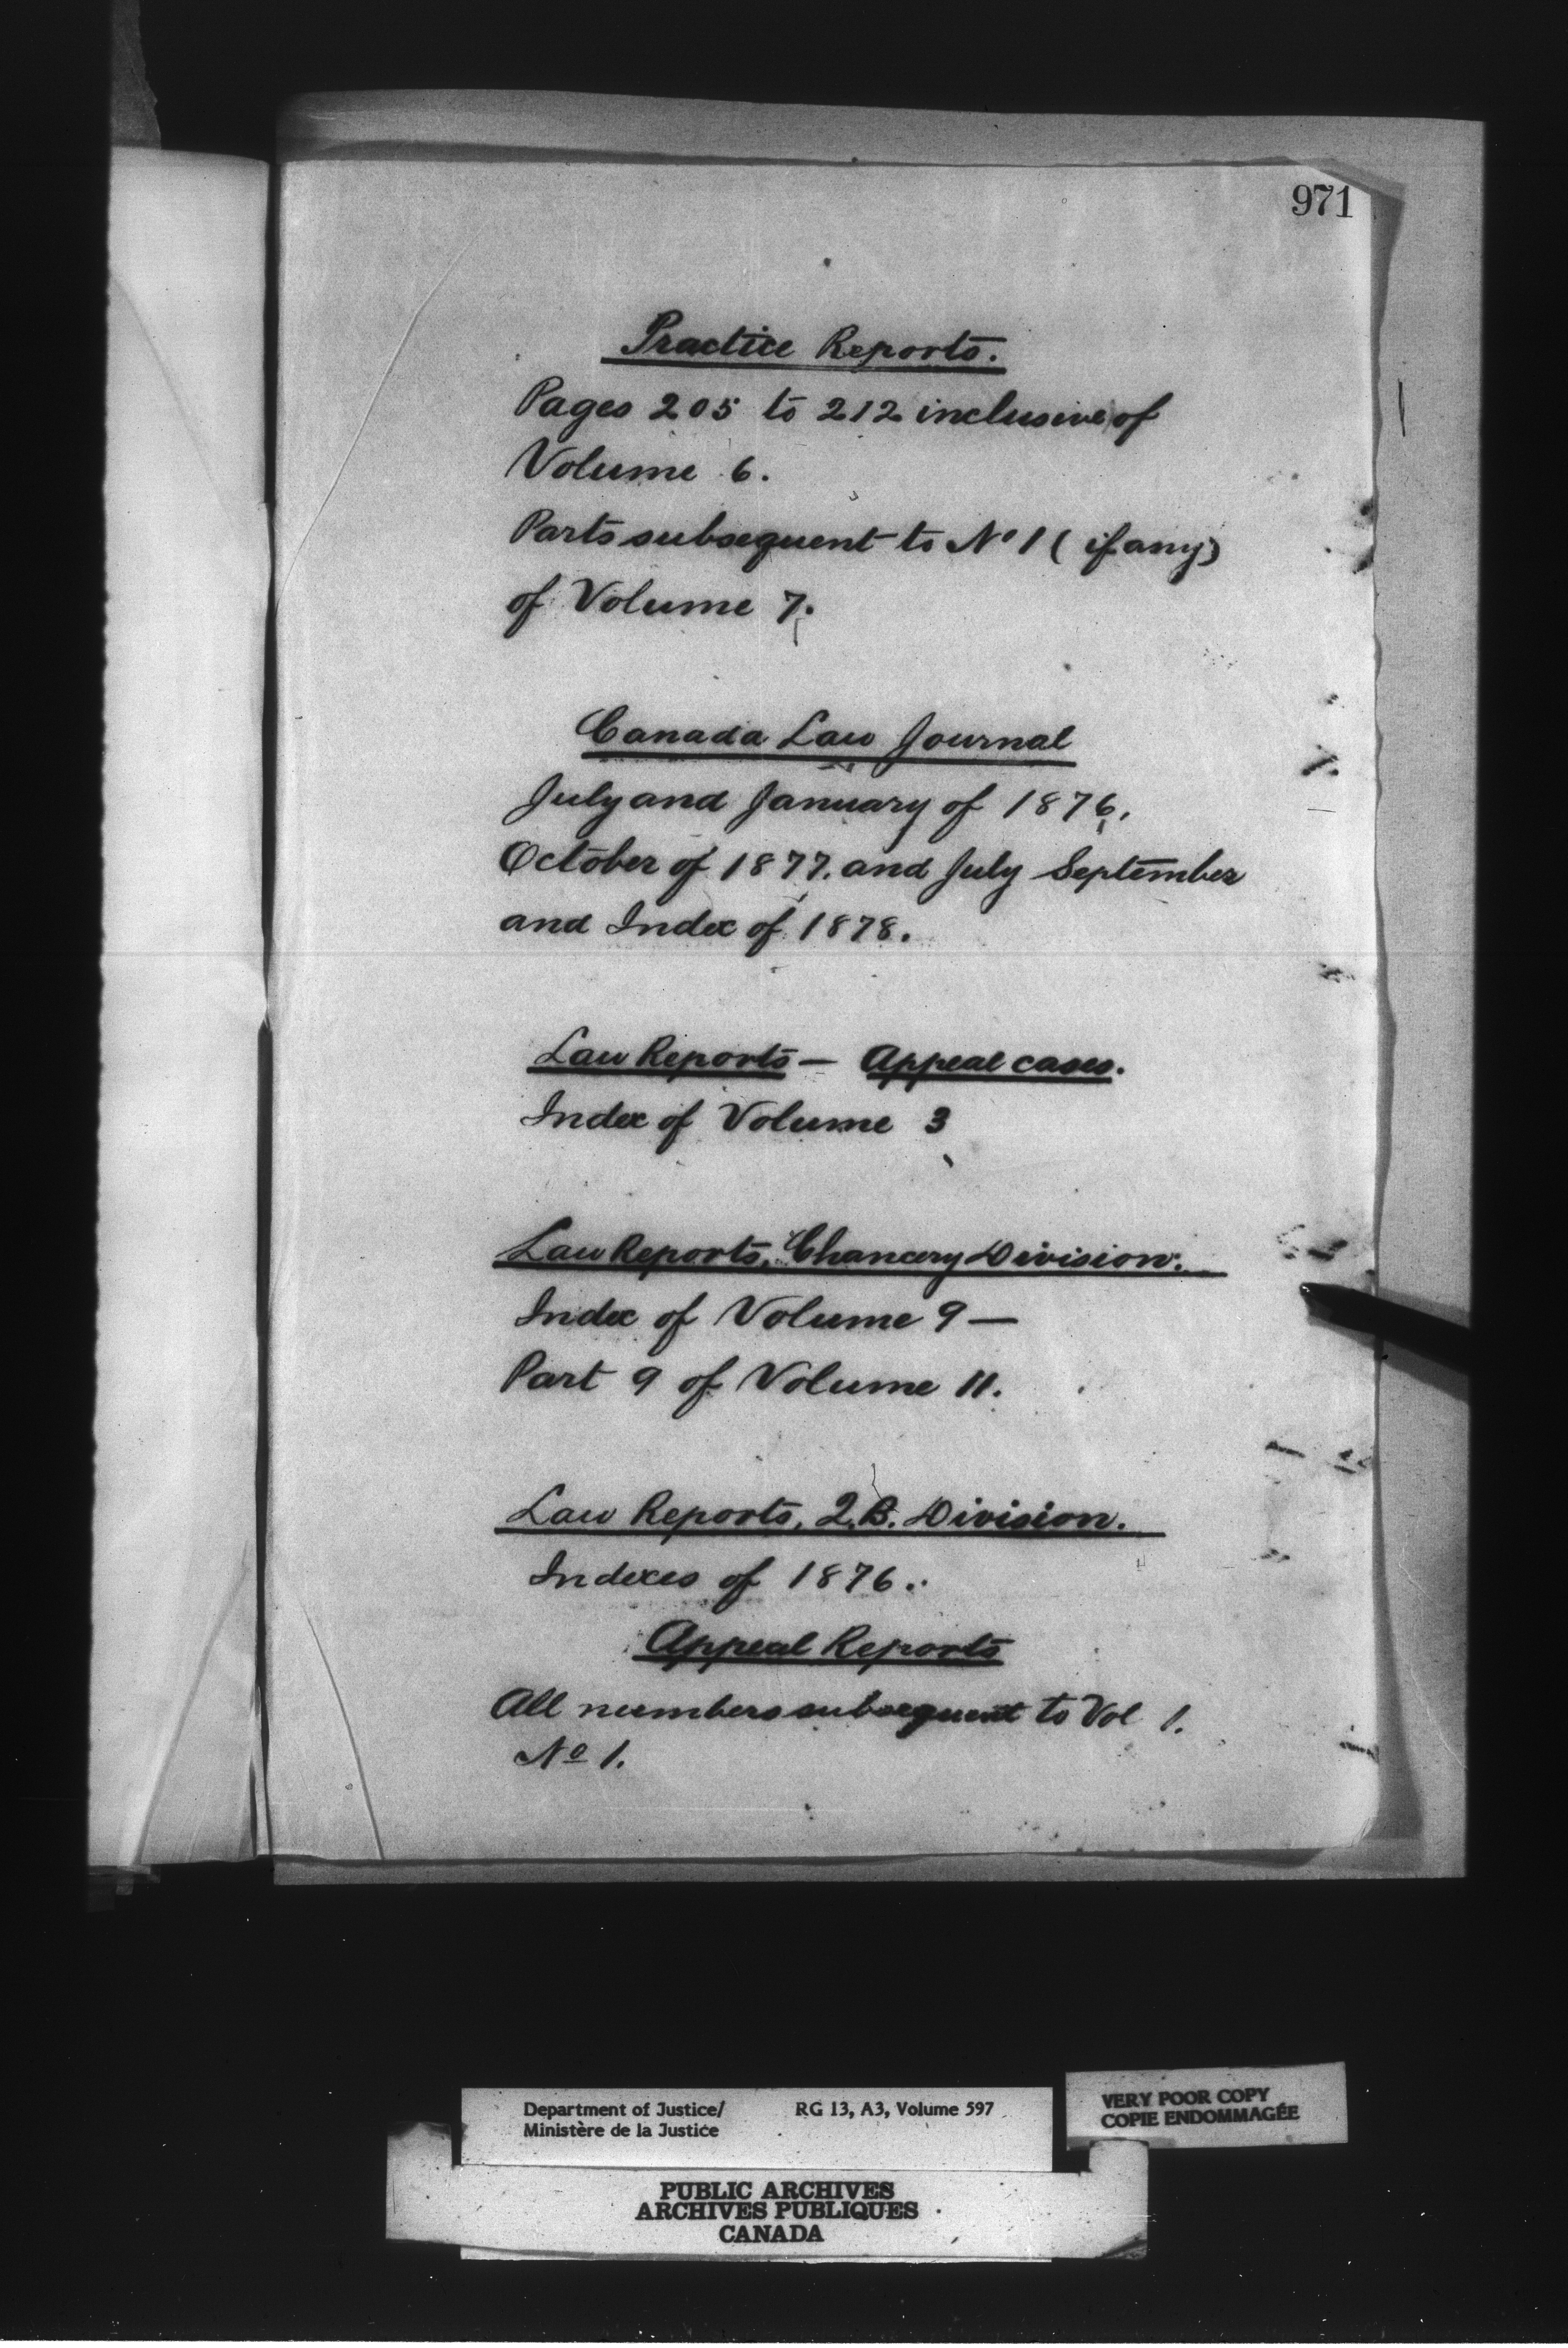 971
Practice Reports.
Pages 205 to 212 inclusive of
Volume 6.
Parts subsequent to No 1 (if any)
of Volume 7.
Canada Law Journal
July and January of 1876,
October of 1877. and July September
and Index of 1878.
Law Reports — Appeal cases.
Index of Volume 3
Law Reports, Chancery Division.
Index of Volume 9 —
Part 9 of Volume 11.
Law Reports, Q.B. Division.
Indexes of 1876.
Appeal Reports
All numbers subsequent to Vol 1.
No 1.
Department of Justice/ RG 13, A3, Volume 597
Ministère de la Justice
VERY POOR COPY
COPIE ENDOMMAGÉE
PUBLIC ARCHIVES
ARCHIVES PUBLIQUES
CANADA